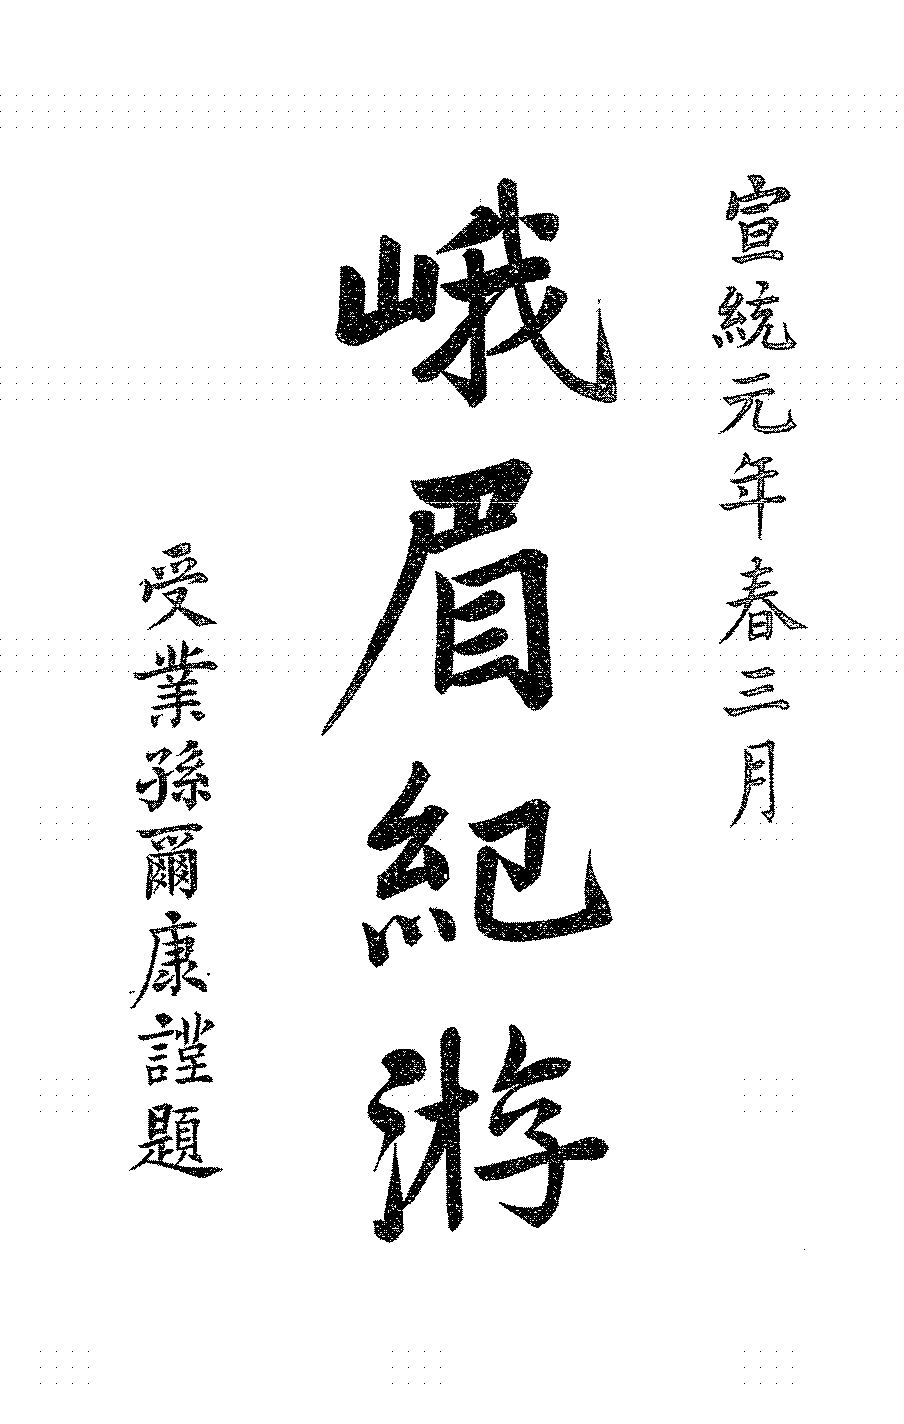 宣統元年春三月
峨眉紀游
受業孫爾康謹題